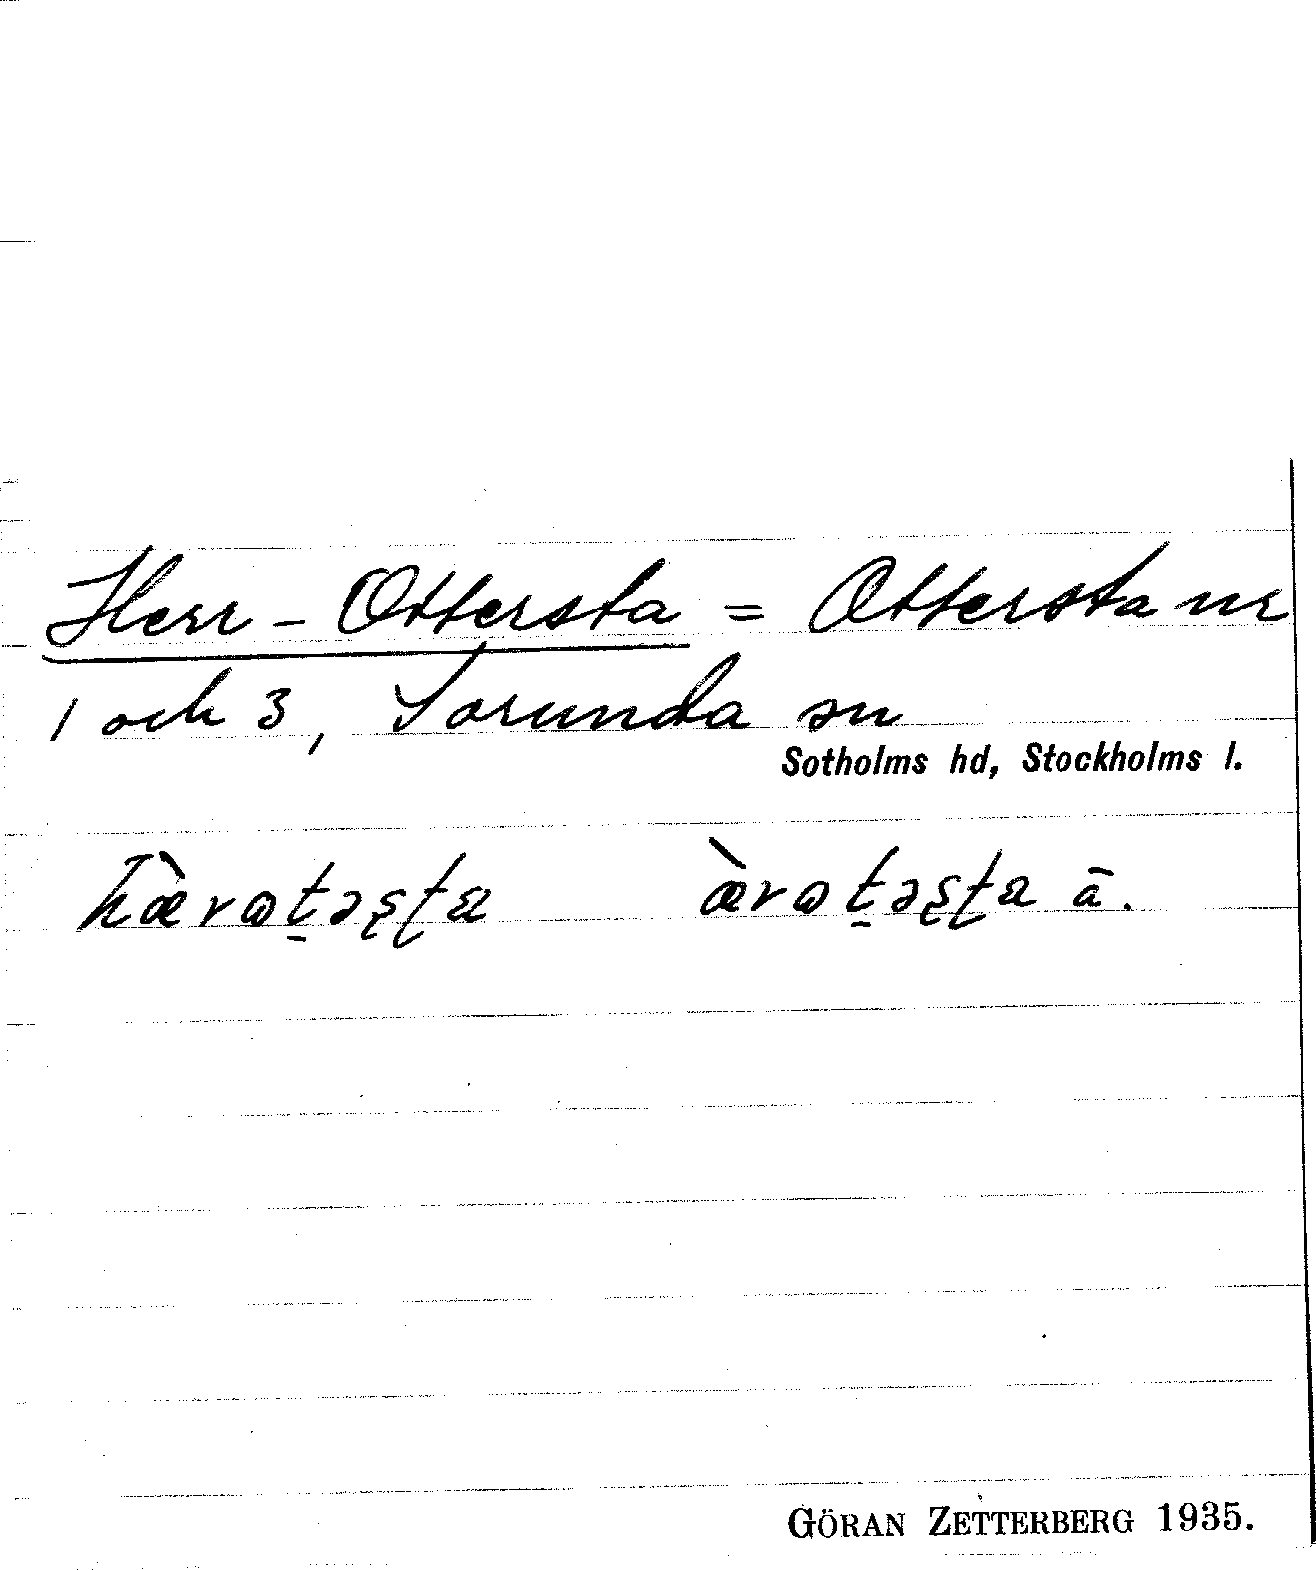 Herr-Ottersta = Ottersta nr
1 och 3, Sorunda sn
Sotholms hd, Stockholms l.
hæ̀rⱺt̠əʂʈɐ æ̀rⱺt̠əʂʈɐ ā.
GÖRAN ZETTERBERG 1935.